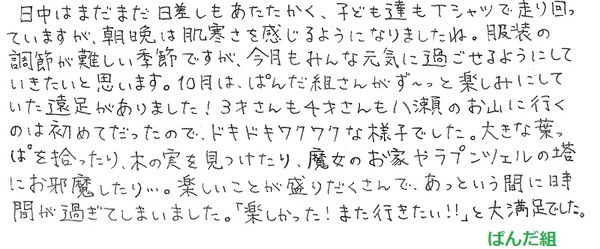 日中はまだまだ日差しもあたたかく、子ども達もTシャツで走り回っ
ていますが、朝晩は肌寒さを感じるようになりましたね。服装の
調節が難しい季節ですが、今月もみんな元気に過ごせるようにして
いきたいと思います。10月は、ぱんだ組さんがず〜っと楽しみにして
いた遠足がありました!3才さんも4才さんも八瀬のお山に行く
のは初めてだったので、ドキドキワクワクな様子でした。大きな葉っ
ぱを拾ったり、木の実を見つけたり、魔女のお家やラプンツェルの塔
にお邪魔したり…。楽しいことが盛りだくさんで、あっという間に時
間が過ぎてしまいました。「楽しかった!また行きたい!!」と大満足でした。
ぱんだ組